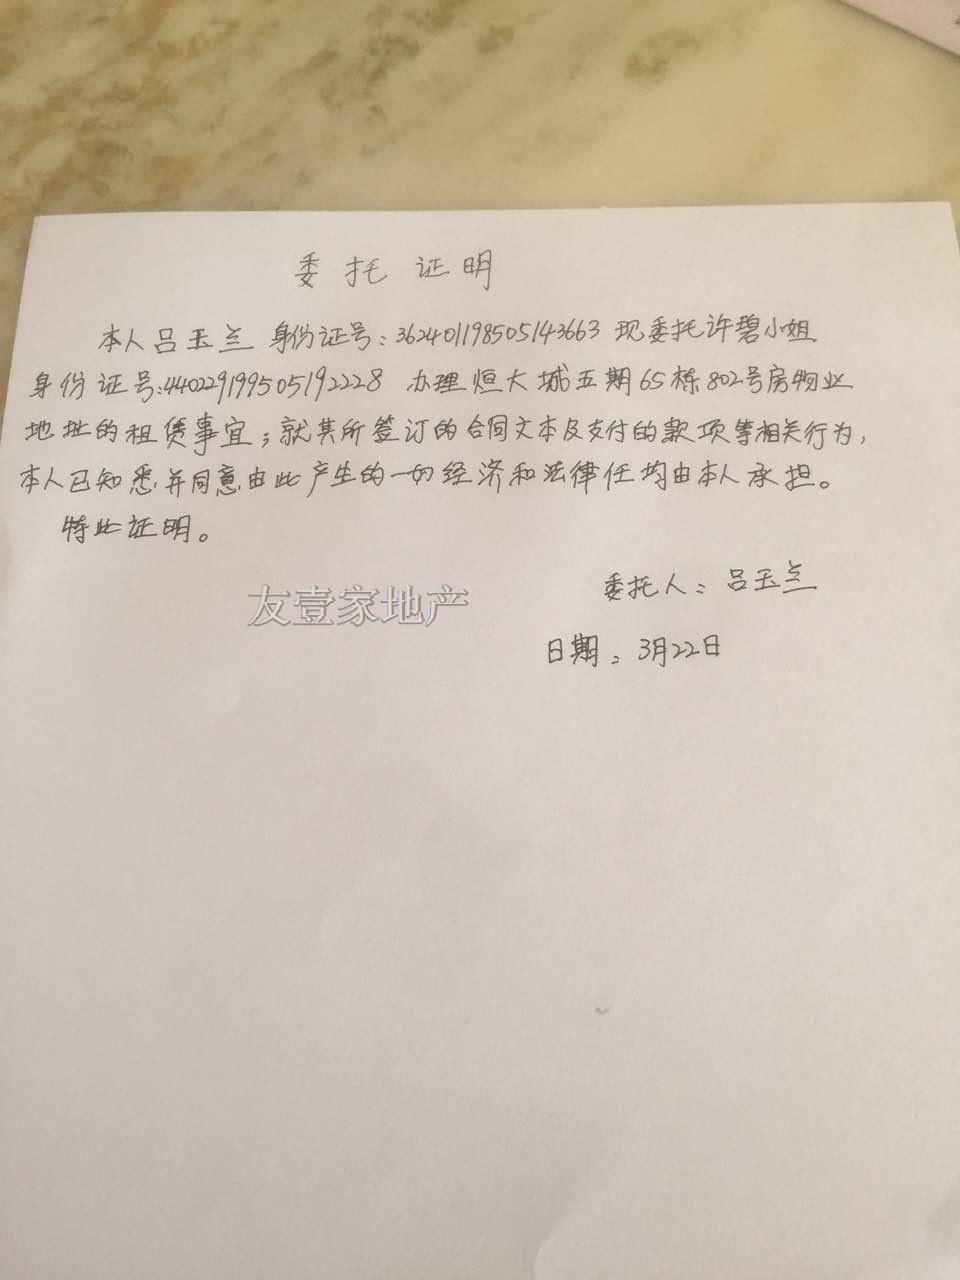 委托证明
本人吕玉兰 身份证号:362401198505143663 现委托许碧小姐
身份证号:440229199505192228 办理恒大城五期65栋802号房物业
地址的租赁事宜;就其所签订的合同文本及支付的款项等相关行为,
本人已知悉并同意由此产生的一切经济和法律任均由本人承担。
特此证明。
委托人:吕玉兰
友壹家地产
日期:3月22日